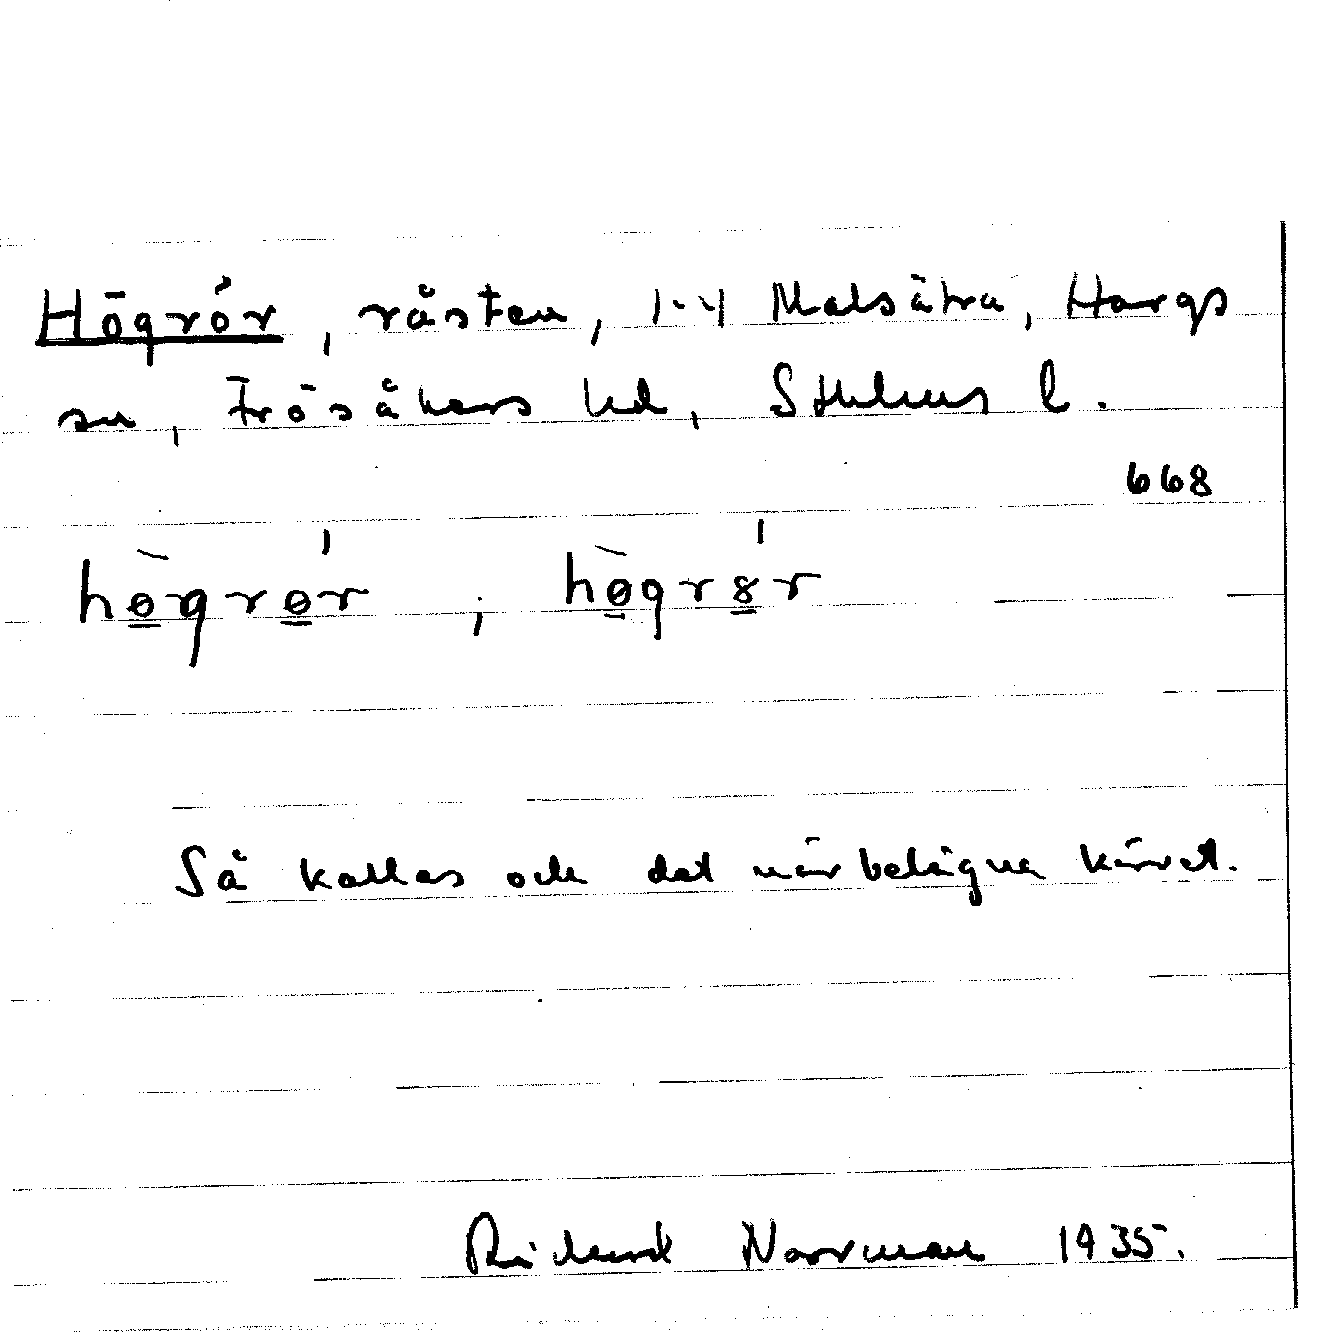 Högrör, råsten, 1-4 Malsätra, Hargs
sn, Frösåkers hd, Sthlms l.
668
hø̱grø̱r, hø̱gr8̱r
Så kallas och det närbelägna kärret.
Richard Norrman 1935.